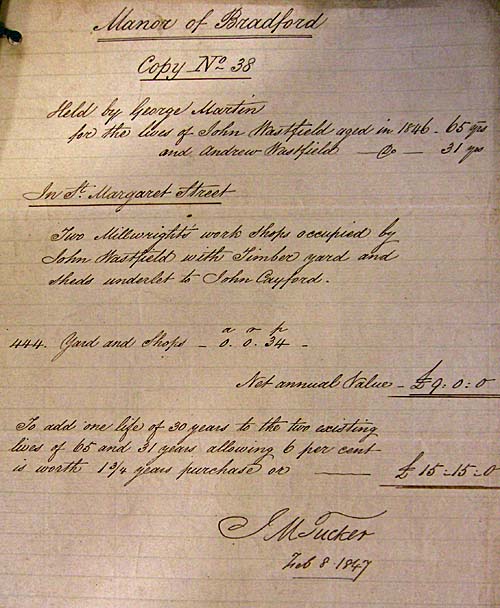 Manor of Bradford
Copy No 38
Held by George Martin
for the lives of John Wastfield aged in 1846 - 65 yrs
and Andrew Wastfield — Do — 31 yrs
In St. Margaret Street
Two Millwright's work Shops occupied by
John Wastfield with Timber yard and
Sheds underlet to John Cayford.
a r p
444. Yard and Shops - 0. 0. 34 -
Net annual Value - £9: 0: 0
To add one life of 30 years to the two existing
lives of 65 and 31 years, allowing 6 per cent
is worth 1 3/4 years purchase or — £15-15-0
J M Tucker
Feb 8 1847